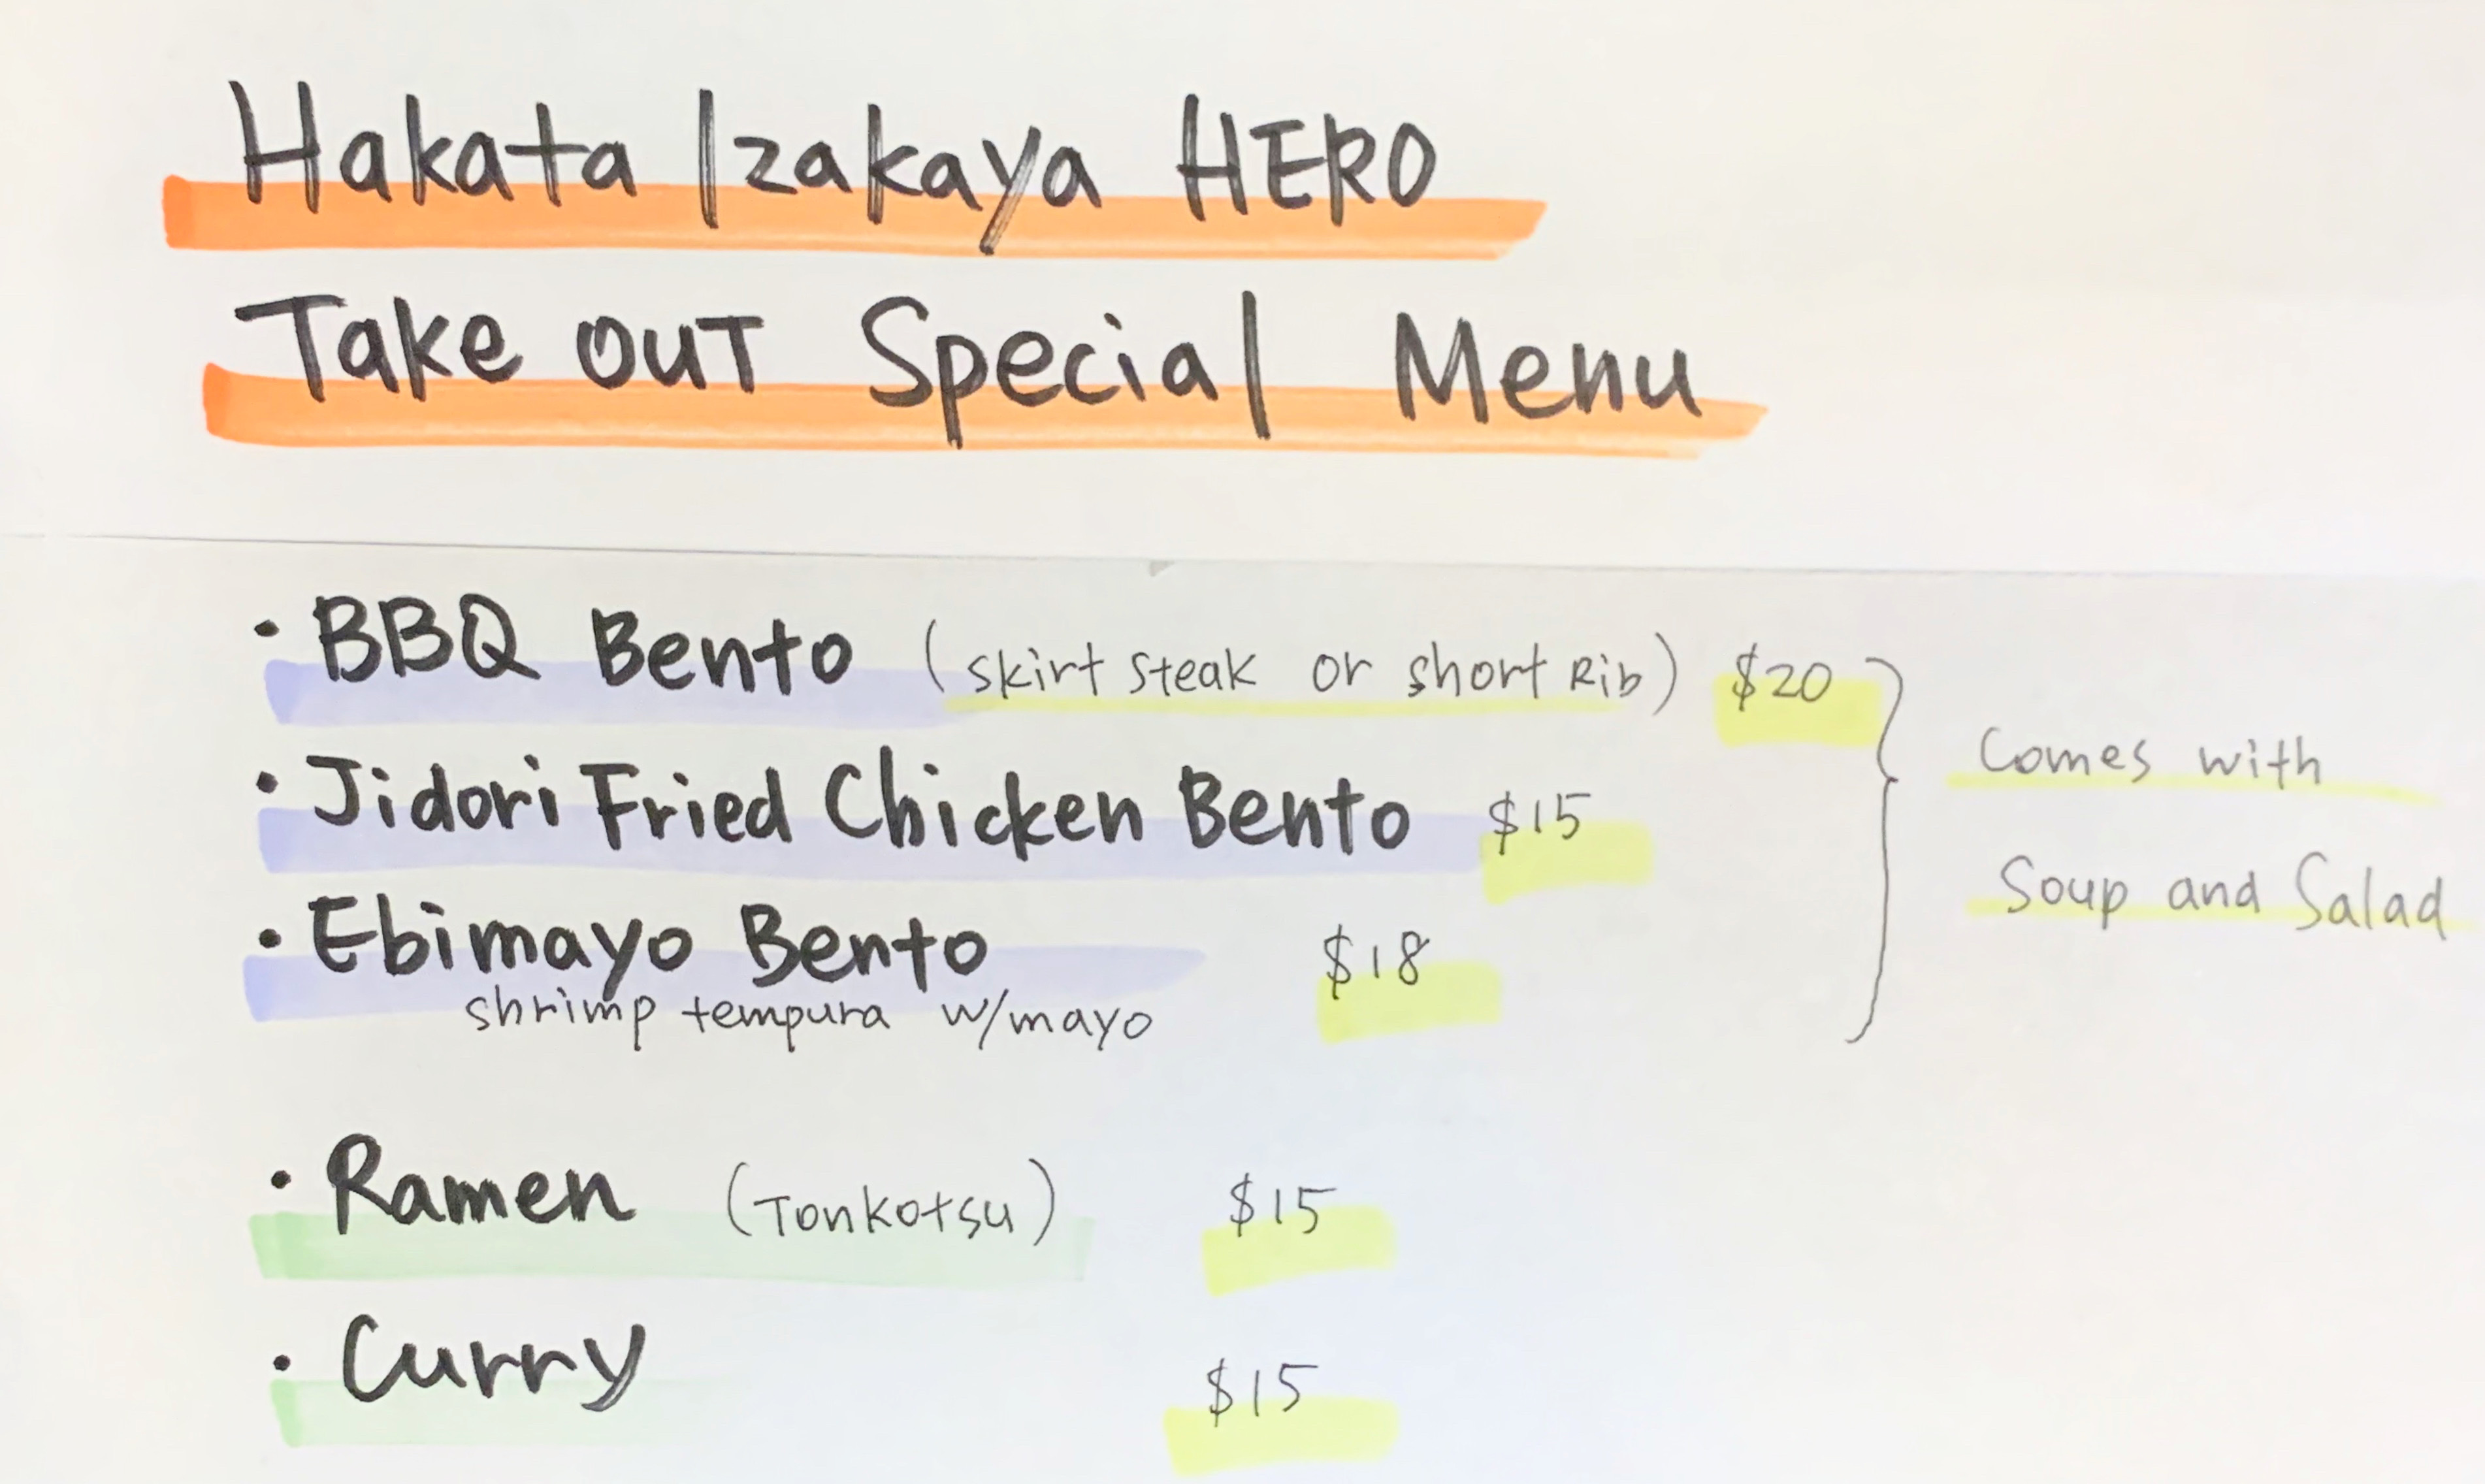 Hakata Izakaya HERO
Take OUT Special Menu
・BBQ Bento (skirt steak or short Rib) $20
・Jidori Fried Chicken Bento $15
Comes with
Soup and Salad
・Ebimayo Bento $18
shrimp tempura w/mayo
・Ramen (Tonkotsu) $15
・Curry $15